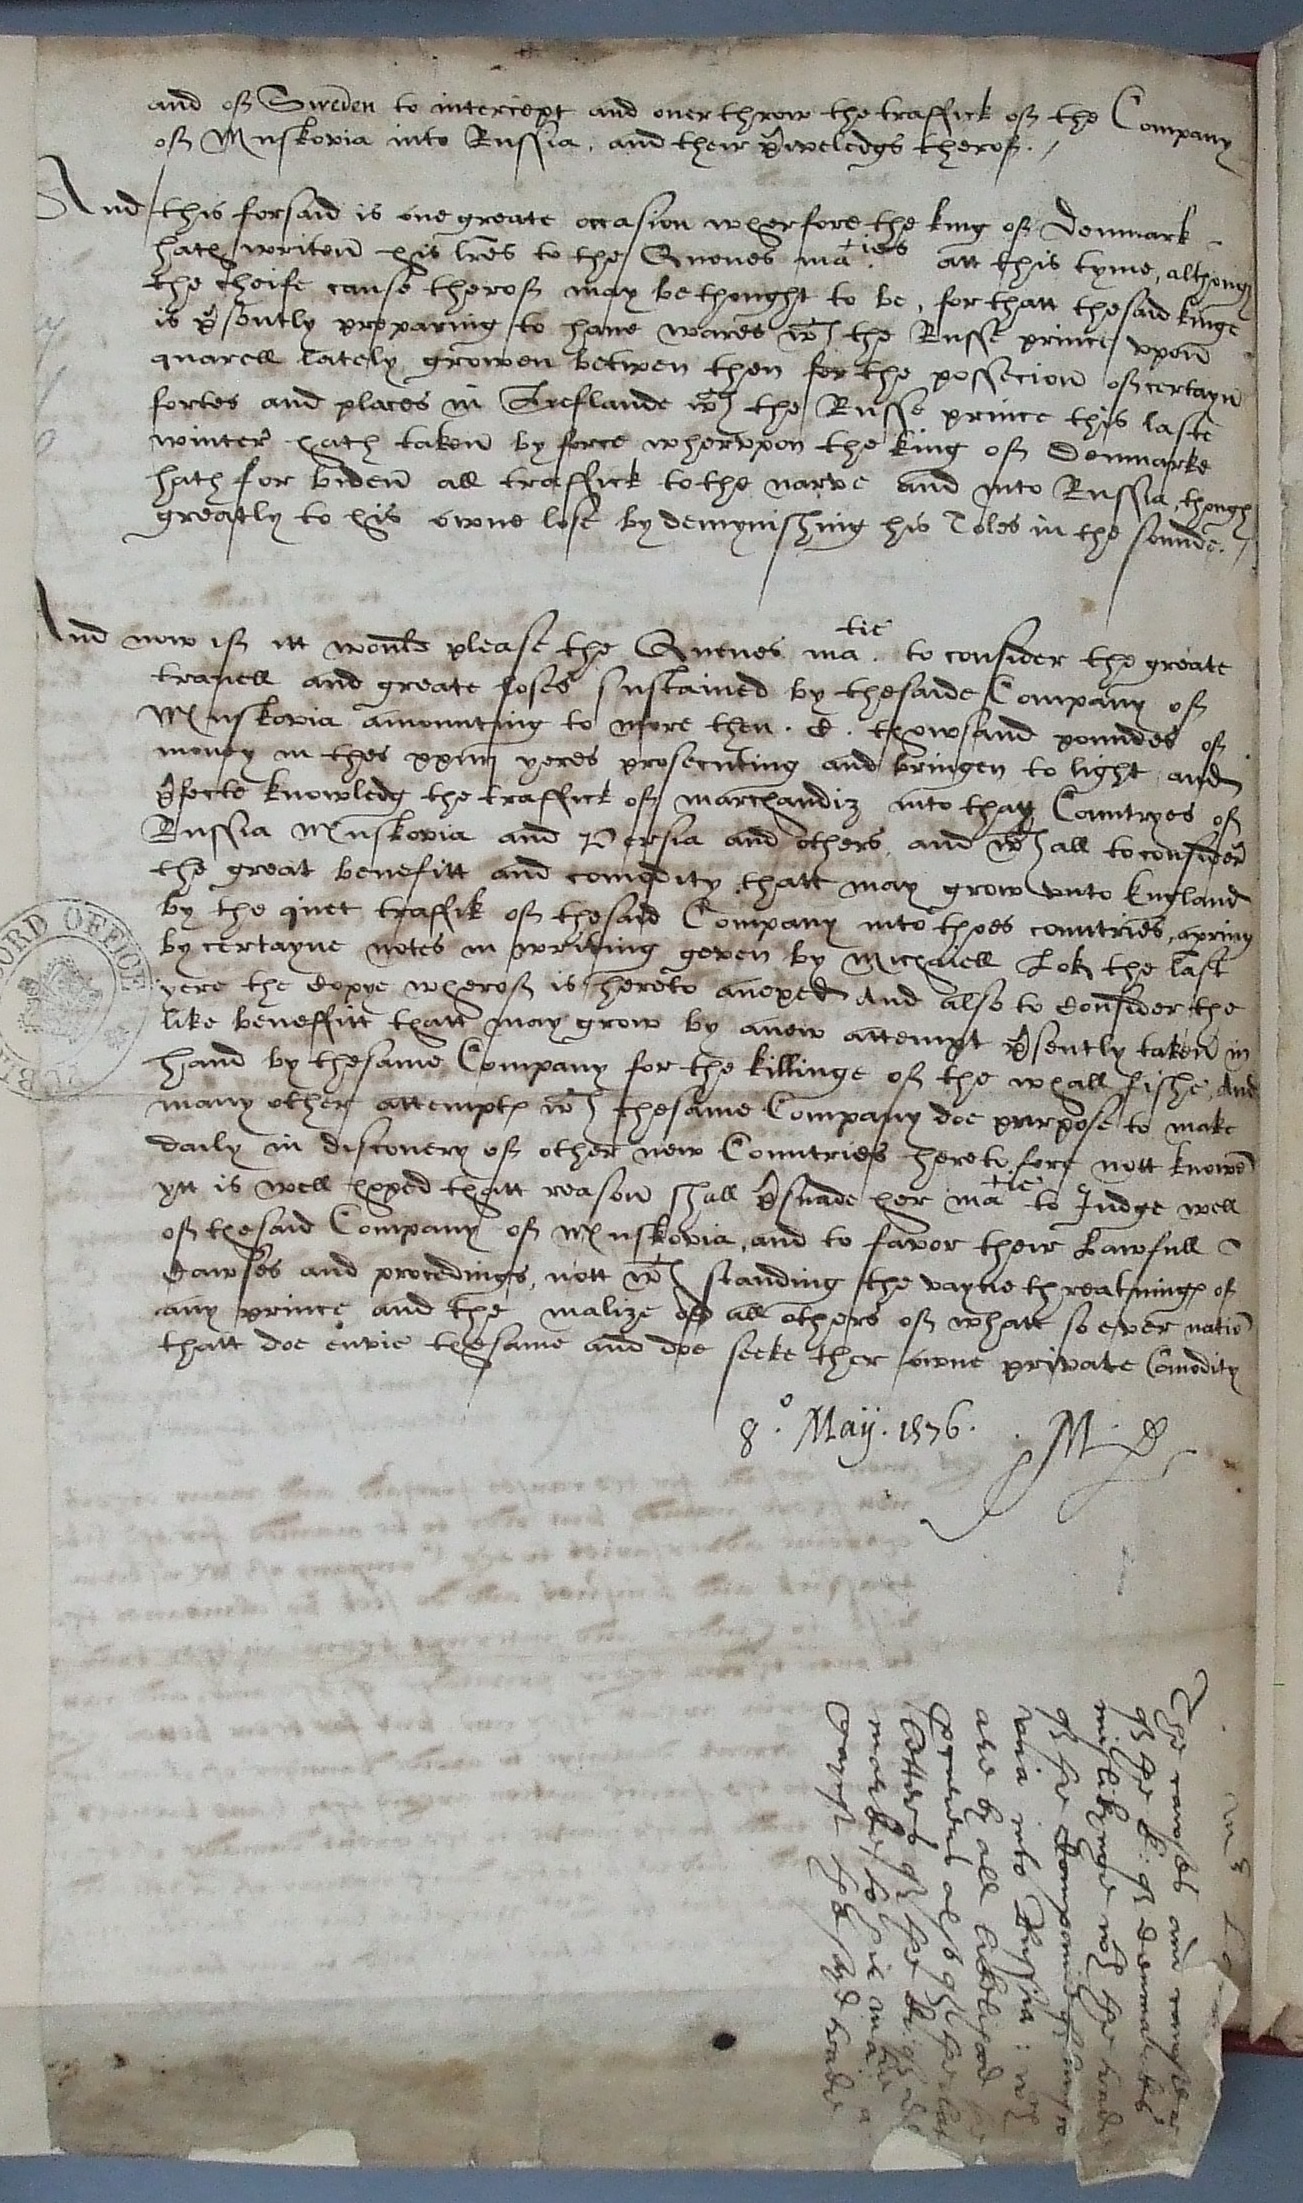 and of Sweden to intercept and overthrow the traffick of the Company
of Muskovia into Russia, and their p̃iveledgs therof.
And this forsaid is one greate occasion wherfore the king of Denmark
hath writen his lr̃es to the Quenes ma^ties att this tyme, although
the cheife cause therof may be thought to be, for thatt thesaid kinge
is p̃sently preparing to have wares w^th the Russe prince vpon
quarell lately growen betwen then for the possecion of certayn
fortes and places in Lieflande w^ch the Russe prince this laste
winter hath taken by force whervpon the king of Denmarke
hath for biden all traffick to the narve and into Russia, though
greatly to his owne lose by demynishing his Toles in the sounde.
And now if itt would please the Quenes ma^tie. to consider the greate
travell and greate loses sustained by thesaide Company of
Muskovia amounting to more then . C . thowsand poundes of
money in thes xxiiij yeres prosecuting and bringen to light and
p̃fecte knowledg the traffick of marchandiz into thatt Countryes of
Russia Muskovia and Persia and others, and w^th all to consider
the great benefitt and comodity thatt may grow vnto England
by the quiet traffik of thesaid Company into thoes countries, apering
by certayne notes in writing geven by Michaell Lok the last
yere the Copye wherof is hereto anexed And also to Consider the
like beneffitt thatt may grow by anew attempt p̃sently taken in
hand by thesame Company for the killinge of the whall fishe, And
many other attempts w^ch thesame Company doe purpose to make
daily in discovery of other new Countries hereto fore nott knowen
ytt is well hoped thatt reason shall p̃suade her ma^tie to Judge well
of thesaid Company of Muskovia, and to favor their Lawfull
Cawses and procedings, nott w^th standing the vayne threatnings of
any prince and the malize of all others of whatt so ever natiō
thatt doe envie thesame and doe seeke ther owne private Comodity
8.° Maij. 1576. . M. L
The causes and
of the k: of denmarkes
mislikinge w^th the trade
of the Companie of
via into Russia: w^ch
are by all liklihood
also of the
letters of the k: of
marke to hir ma^tie
the sayd trade